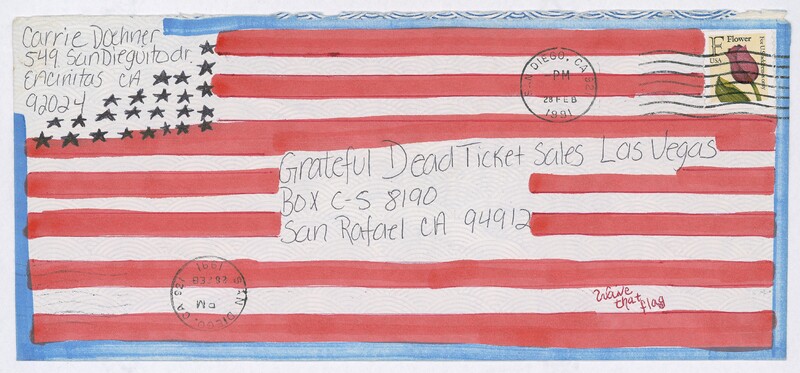 Carrie Doehner
549 San Dieguito dr.
Encinitas CA
92024
SAN DIEGO, CA 921
PM
28 FEB
1991
F Flower
USA
For U.S. addresses only
Grateful Dead Ticket Sales Las Vegas
Box C-S 8190
San Rafael CA 94912
SAN DIEGO, CA 921
PM
28 FEB
1991
Wave
that
flag